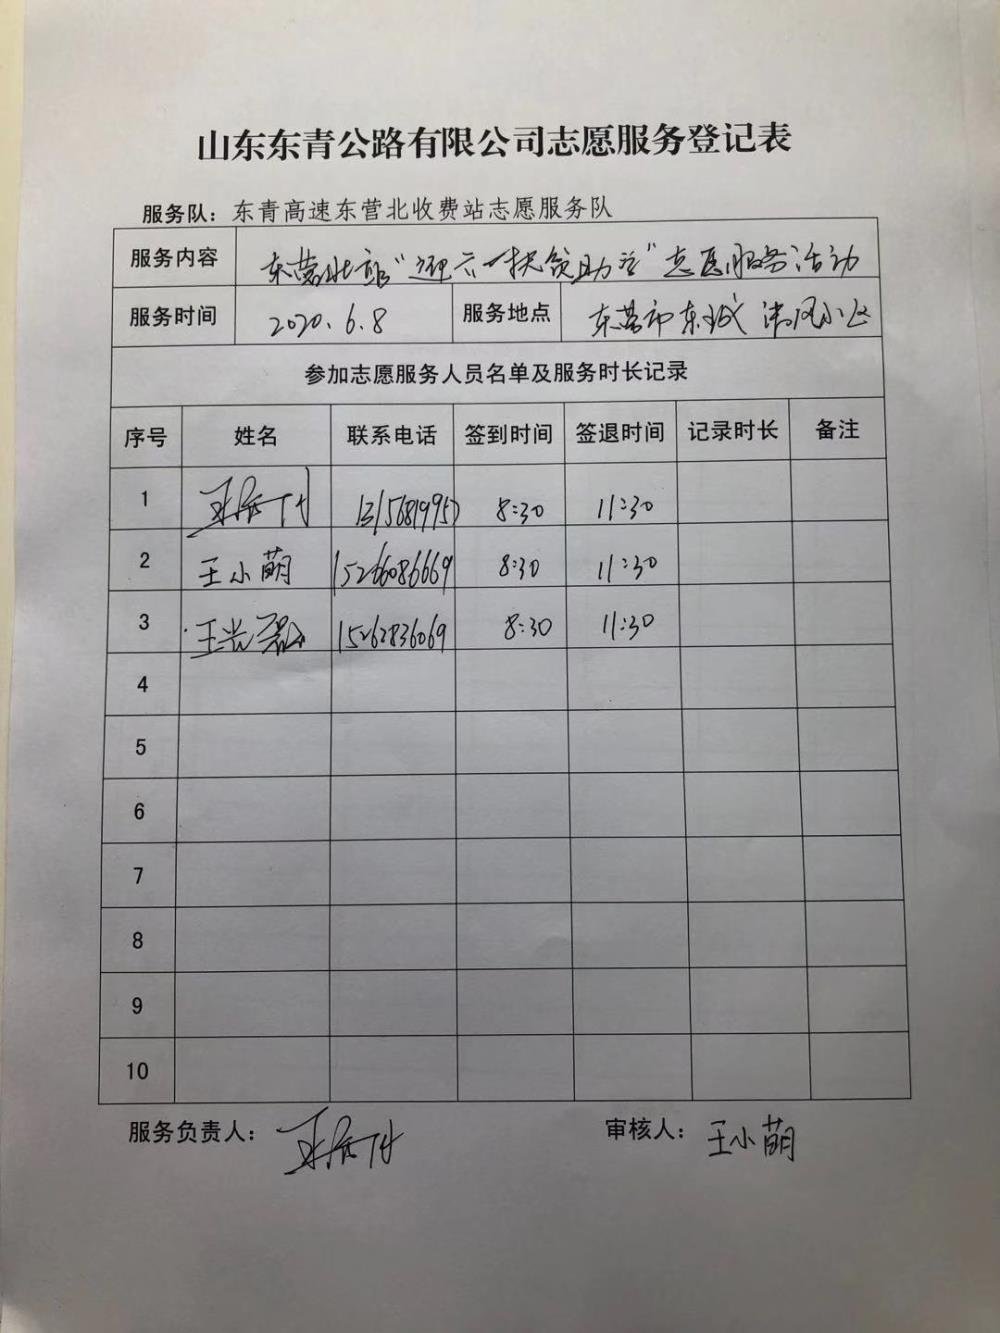 山东东青公路有限公司志愿服务登记表
服务队：东青高速东营北收费站志愿服务队
服务内容 东营北站“迎六一扶贫助学”志愿服务活动
服务时间 2020.6.8 服务地点 东营市东城清风小区
参加志愿服务人员名单及服务时长记录
序号 姓名 联系电话 签到时间 签退时间 记录时长 备注
1 8:30 11:30
2 王小萌 15266086669 8:30 11:30
3 王光 15262836069 8:30 11:30
4
5
6
7
8
9
10
服务负责人： 审核人：王小萌